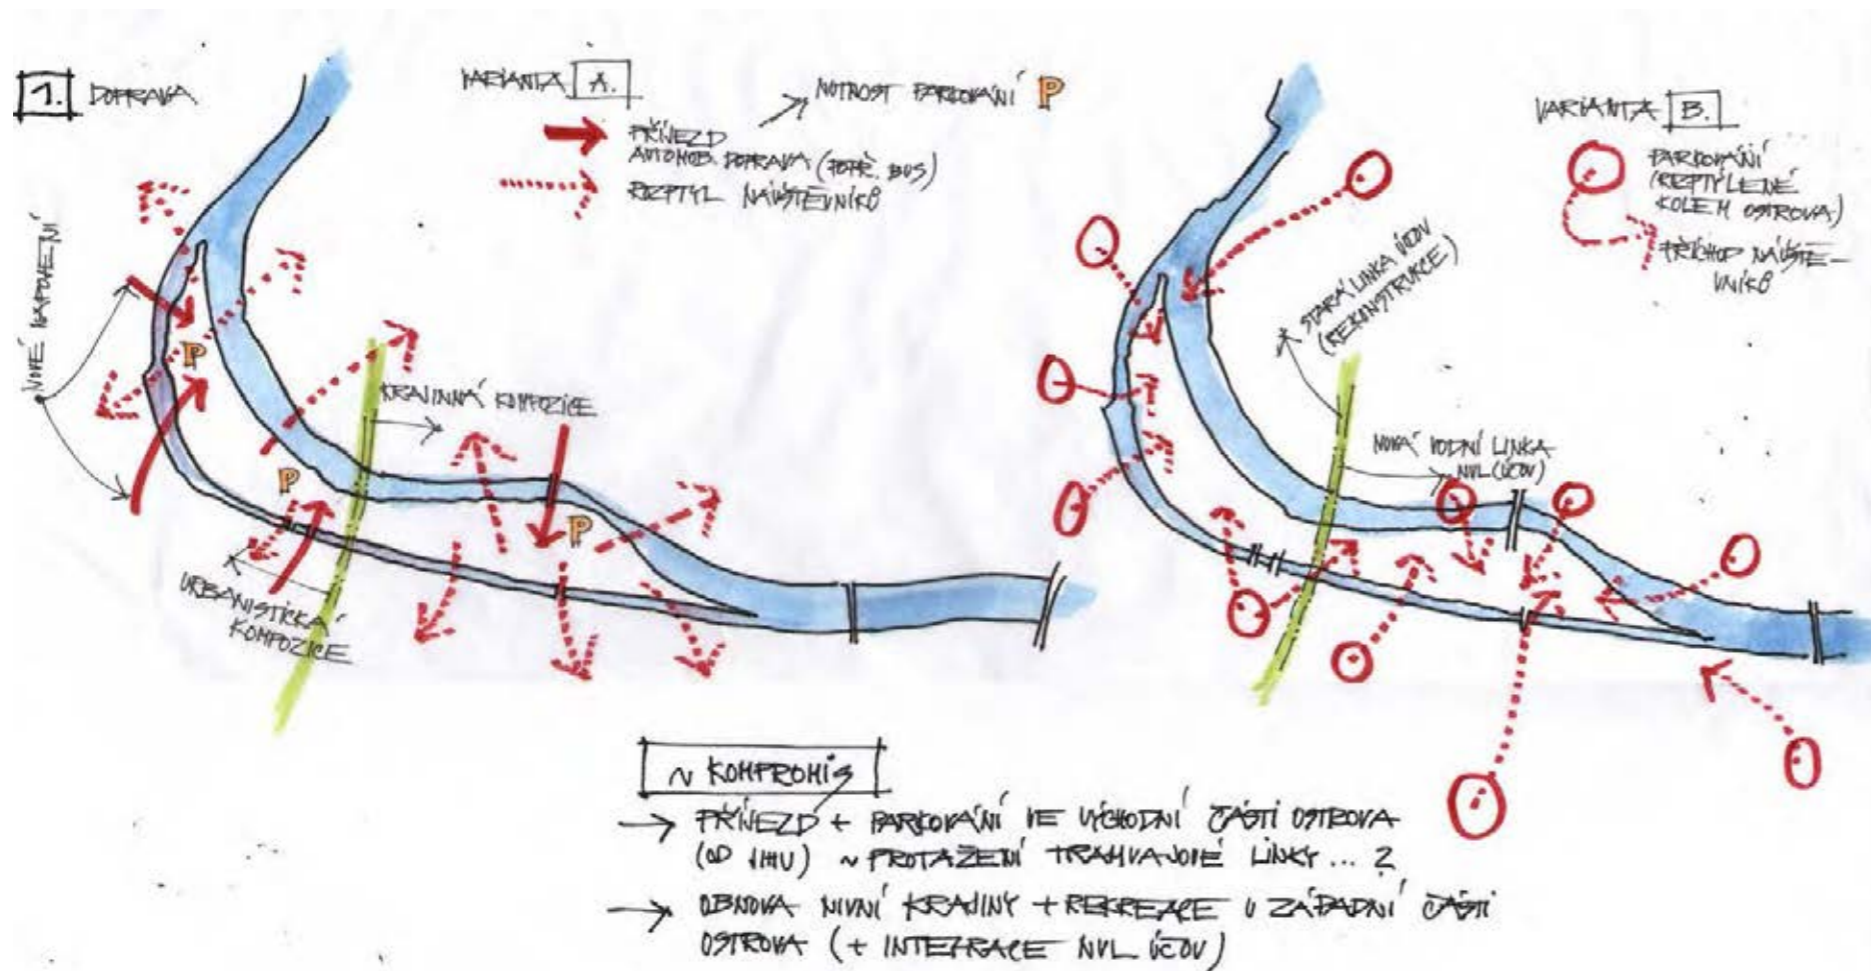 1. DOPRAVA
VARIANTA A.
NUTNOST PARKOVÁNÍ P
PŘÍJEZD
AUTOMOB. DOPRAVA (POPŘ. BUS)
ROZPTYL NÁVŠTĚVNÍKŮ
NOVÉ NAPOJENÍ
P
KRAJINNÁ KOMPOZICE
P
P
URBANISTICKÁ
KOMPOZICE
VARIANTA B.
PARKOVÁNÍ
(ROZPTÝLENÉ
KOLEM OSTROVA)
PŘÍCHOD NÁVŠTĚ-
VNÍKŮ
STARÁ LINKA ÚČOV
(REKONSTRUKCE)
NOVÁ VODNÍ LINKA
NVL (ÚČOV)
~ KOMPROMIS
→ PŘÍJEZD + PARKOVÁNÍ VE VÝCHODNÍ ČÁSTI OSTROVA
(OD JIHU) ~ PROTAŽENÍ TRAMVAJOVÉ LINKY ... ?
→ OBNOVA NIVNÍ KRAJINY + REKREACE V ZÁPADNÍ ČÁSTI
OSTROVA (+ INTEGRACE NVL ÚČOV)